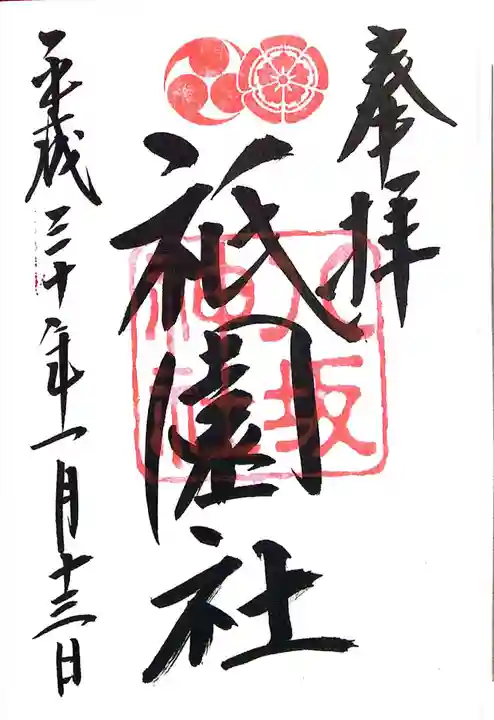 奉拝
八坂
神社
祇園社
平成三十年一月十三日